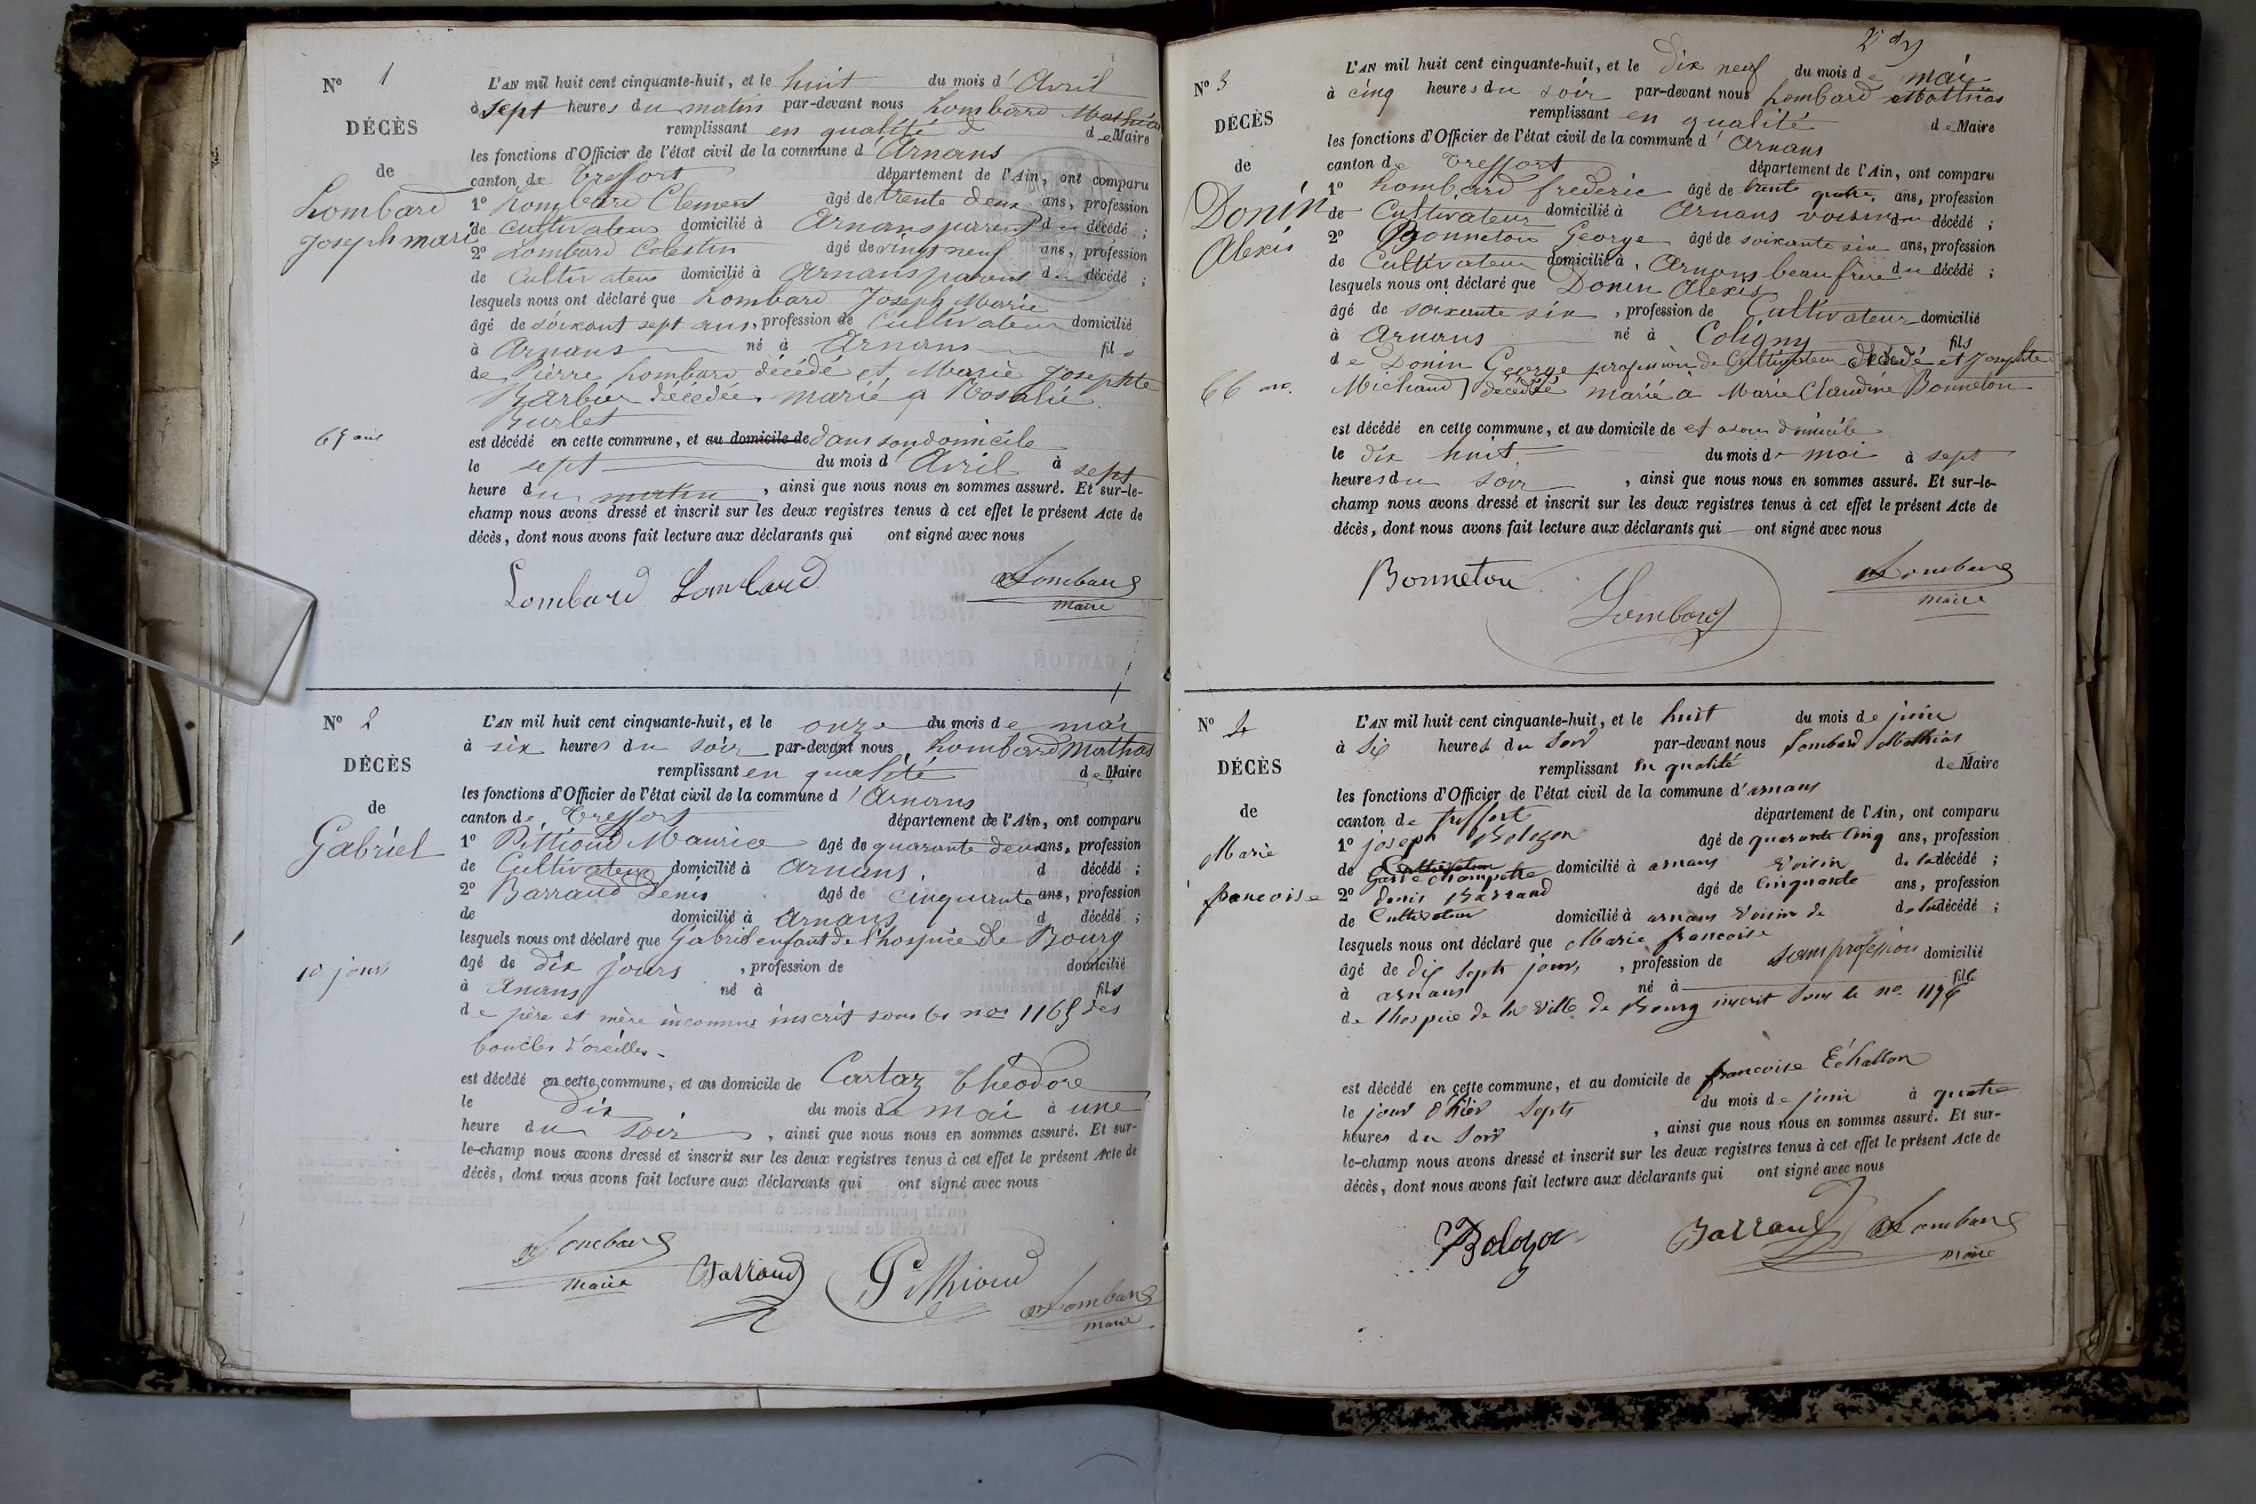 N° 1
DÉCÈS
de
Lombard
Joseph marie
67 ans
L'AN mil huit cent cinquante-huit, et le huit du mois d'Avril
à sept heures du matin par-devant nous Lombard Mathias
remplissant en qualité de Maire
les fonctions d'Officier de l'état civil de la commune d'Arnans
canton de Treffort département de l'Ain, ont comparu
1° Lombard Clement âgé de trente deux ans, profession
de Cultivateur domicilié à Arnans parent du décédé ;
2° Lombard Celestin âgé de vingt neuf ans, profession
de Cultivateur domicilié à Arnans parent du décédé ;
lesquels nous ont déclaré que Lombard Joseph Marie
âgé de soixant sept ans, profession de Cultivateur domicilié
à Arnans né à Arnans fils
de Pierre Lombard décédé et Marie Josephte
Barbier décédée. marié a Rosalie
Burlet
est décédé en cette commune, et au domicile de dans son domicile
le sept du mois d'Avril à sept
heure du matin, ainsi que nous nous en sommes assuré. Et sur-le-
champ nous avons dressé et inscrit sur les deux registres tenus à cet effet le présent Acte de
décès, dont nous avons fait lecture aux déclarants qui ont signé avec nous
Lombard Lombard Lombard
maire
N° 2
DÉCÈS
de
Gabriel
10 jours
L'AN mil huit cent cinquante-huit, et le onze du mois de mai
à six heures du soir par-devant nous Lombard Mathias
remplissant en qualité de Maire
les fonctions d'Officier de l'état civil de la commune d'Arnans
canton de Treffort département de l'Ain, ont comparu
1° Pittioud Maurice âgé de quarante deux ans, profession
de Cultivateur domicilié à Arnans d décédé ;
2° Barraud Denis âgé de cinquante ans, profession
de domicilié à Arnans d décédé ;
lesquels nous ont déclaré que Gabriel enfant de l'hospice de Bourg
âgé de dix jours, profession de domicilié
à Arnans né à fils
de père et mère inconnus inscrit sous le no 1165 des
boucles d'oreilles.
est décédé en cette commune, et au domicile de Cartaz Théodore
le dix du mois de mai à une
heure du soir, ainsi que nous nous en sommes assuré. Et sur-
le-champ nous avons dressé et inscrit sur les deux registres tenus à cet effet le présent Acte de
décès, dont nous avons fait lecture aux déclarants qui ont signé avec nous
Lombard
maire Barraud Pitthioud Lombard
maire
N° 3
DÉCÈS
de
Donin
Alexis
66 ans.
L'AN mil huit cent cinquante-huit, et le dix neuf du mois de mai
à cinq heures du soir par-devant nous Lombard Mathias
remplissant en qualité de Maire
les fonctions d'Officier de l'état civil de la commune d'Arnans
canton de Treffort département de l'Ain, ont comparu
1° Lombard frederic âgé de trente quatre ans, profession
de Cultivateur domicilié à Arnans voisin du décédé ;
2° Bonneton George âgé de soixante six ans, profession
de Cultivateur domicilié à Arnans beau frere du décédé ;
lesquels nous ont déclaré que Donin Alexis
âgé de soixante six, profession de Cultivateur domicilié
à Arnans né à Coligny fils
de Donin George profession de Cultivateur décédé et Josephte
Michaud décédé marié a Marie Claudine Bonneton
est décédé en cette commune, et au domicile de et a son domicile
le dix huit du mois de mai à sept
heures du soir, ainsi que nous nous en sommes assuré. Et sur-le-
champ nous avons dressé et inscrit sur les deux registres tenus à cet effet le présent Acte de
décès, dont nous avons fait lecture aux déclarants qui ont signé avec nous
Bonneton Lombard Lombard
maire
N° 4
DÉCÈS
de
Marie
francoise
L'AN mil huit cent cinquante-huit, et le huit du mois de juin
à Six heures du Soir par-devant nous Lombard Mathias
remplissant en qualité de Maire
les fonctions d'Officier de l'état civil de la commune d'arnans
canton de treffort département de l'Ain, ont comparu
1° joseph Bolozon âgé de quarante cinq ans, profession
de Cultivateur Garde champetre domicilié à arnans Voisin de la décédé ;
2° denis Barraud âgé de Cinquante ans, profession
de Cultivateur domicilié à arnans Voisin de de la décédé ;
lesquels nous ont déclaré que Marie francoise
âgé de dix Septs jours, profession de Sans profession domicilié
à arnans né à fille
de l'hospice de la Ville de Bourg inscrit Sous le no. 1176
est décédé en cette commune, et au domicile de francoise Echallon
le jour d'hier Septs du mois de juin à quatre
heures du Soir, ainsi que nous nous en sommes assuré. Et sur-
le-champ nous avons dressé et inscrit sur les deux registres tenus à cet effet le présent Acte de
décès, dont nous avons fait lecture aux déclarants qui ont signé avec nous
Bolozon Barraud Lombard
maire